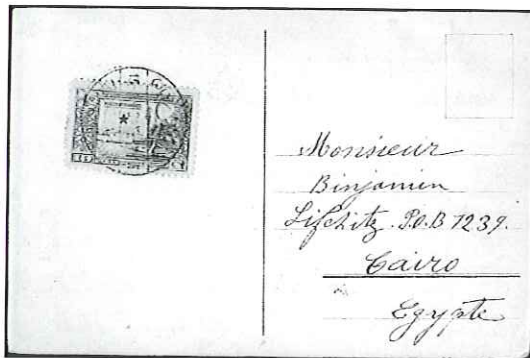 Monsieur
Binjamin
Lifchitz. P.O.B 1239.
Cairo
Egypte